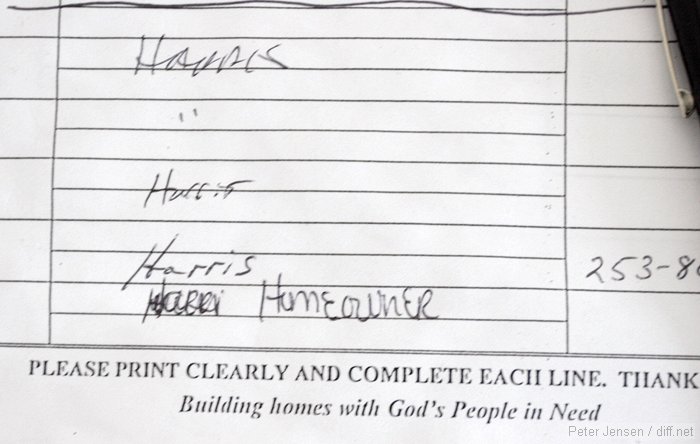 Harris
"
Harris
Harris 253-8
Homeowner
PLEASE PRINT CLEARLY AND COMPLETE EACH LINE. THANK
Building homes with God's People in Need
Peter Jensen / diff.net